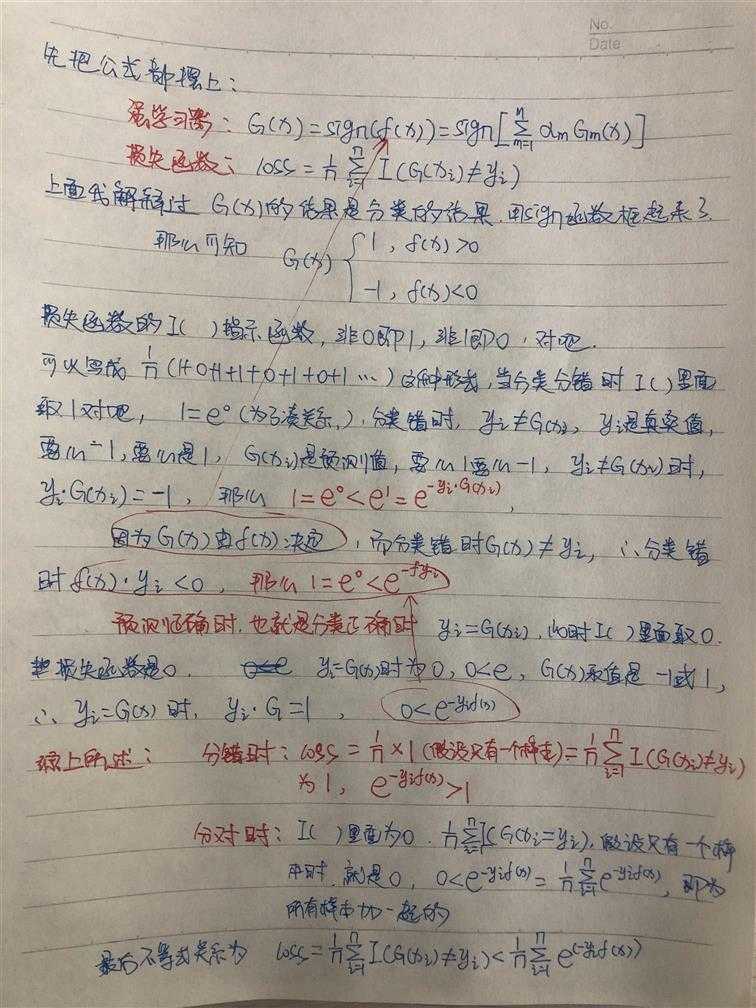 No.
Date
先把公式都摆上:
强学习器: G(x)=sign(f(x))=sign[∑_{m=1}^{n} αm Gm(x)]
损失函数: loss = 1/n ∑_{i=1}^{n} I(G(xi)≠yi)
上面我解释过 G(x)的结果是分类的结果.用sign函数框起来了.
那么可知 G(x) { 1, f(x)>0
-1, f(x)<0
损失函数的I( )指示函数, 非0即1, 非1即0, 对吧.
可以写成 1/n (1+0+1+1+0+1+0+1 ...) 这种形式, 当分类分错时 I( )里面
取1对吧, 1=e⁰ (为了凑关系,). 分类错时, yi≠G(xi), yi是真实值,
要么-1,要么是1, G(xi)是预测值, 要么1要么-1, yi≠G(xi)时,
yi·G(xi)=-1, 那么 1=e⁰<e¹=e^{-yi·G(xi)},
因为G(x)由f(x)决定, 而分类错时G(x)≠yi, ∴分类错
时 f(x)·yi<0, 那么 1=e⁰<e^{-fyi}
预测正确时, 也就是分类正确时 yi=G(xi), 此时I( )里面取0.
损失函数是0. yi=G(x)时为0, 0<e, G(x)取值是 -1或1,
∴ yi=G(x) 时, yi·G=1, 0<e^{-yif(x)}
综上所述: 分错时: loss=1/n×1 (假设只有一个样本)=1/n ∑_{i=1}^{n} I(G(xi)≠yi)
为1, e^{-yif(x)}>1
分对时: I( )里面为0. 1/n ∑_{i=1}^{n} I(G(xi)=yi), 假设只有一个样
本时, 就是0, 0<e^{-yif(x)}=1/n ∑_{i=1}^{n} e^{-yif(x)}, 即为
所有样本加一起的
最后不等式关系为 loss=1/n ∑_{i=1}^{n} I(G(xi)≠yi)<1/n ∑_{i=1}^{n} e^{(-yif(x))}